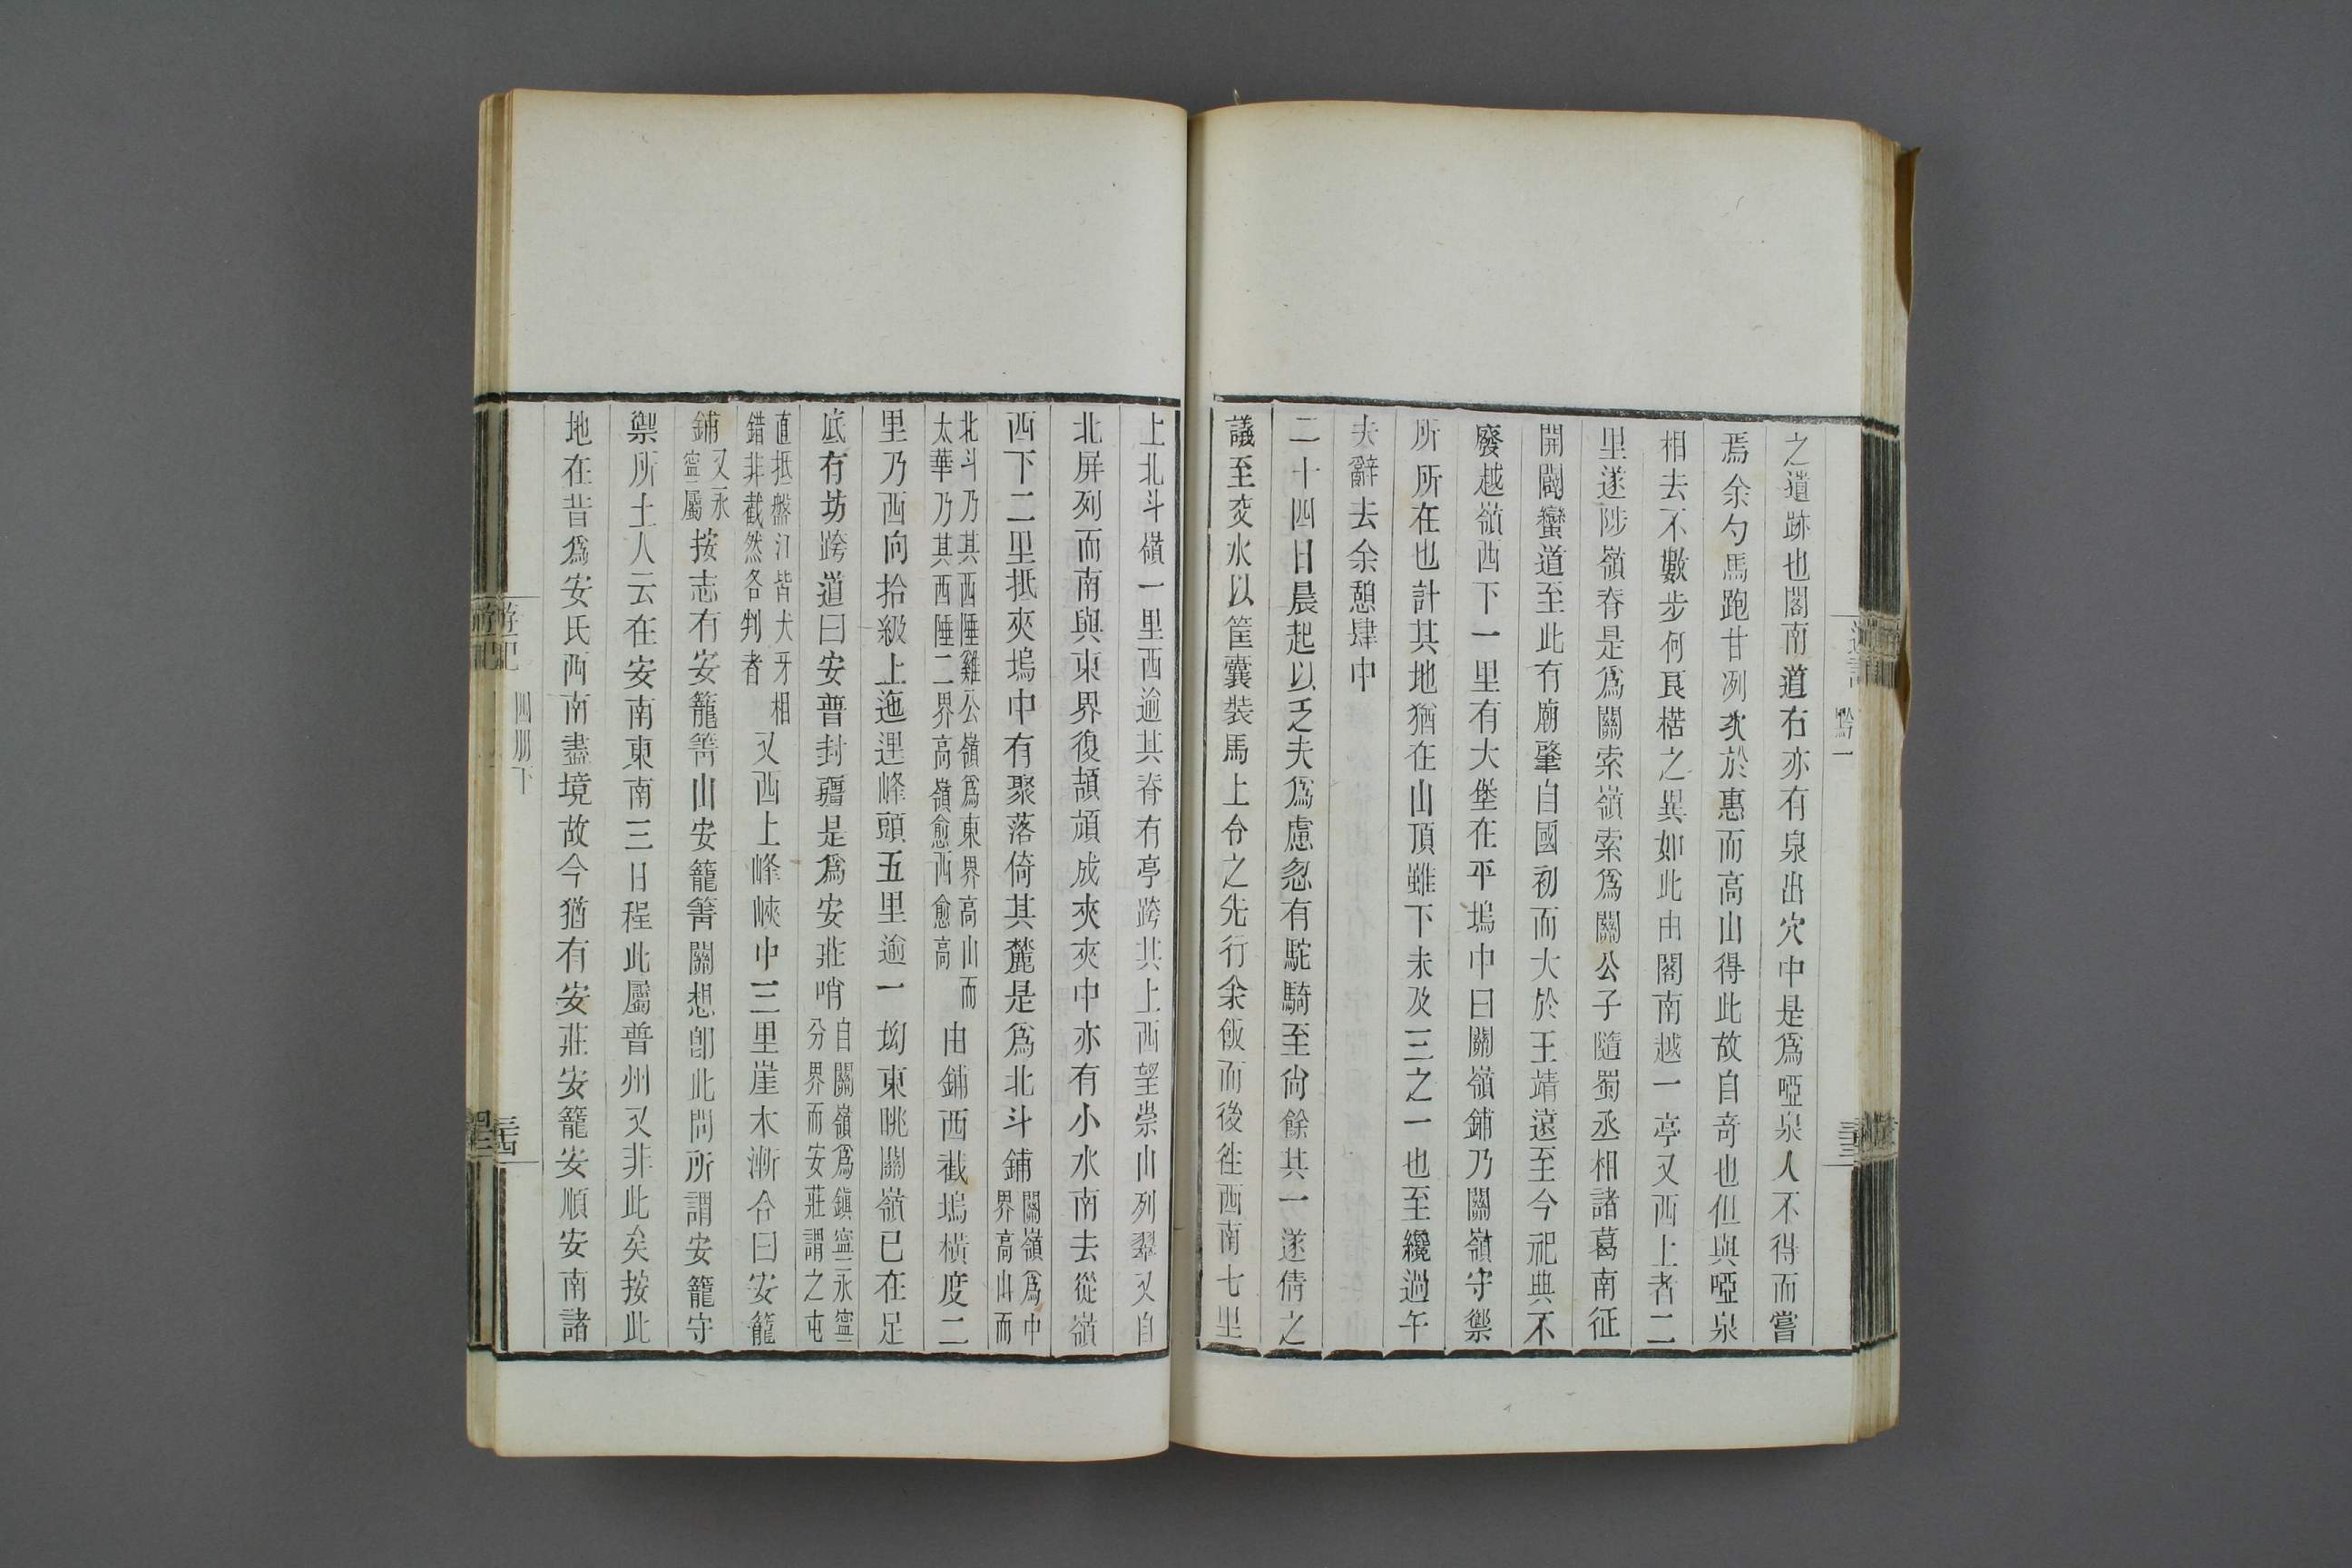 之遺跡也閣南道右亦有泉出穴中是爲啞泉人不得而嘗
焉余勺馬跑甘冽次於惠而高山得此故自奇也但與啞泉
相去不數步何良楛之異如此由閣南越一亭又西上者二
里遂陟嶺脊是爲關索嶺索爲關公子隨蜀丞相諸葛南征
開闢蠻道至此有廟肇自國初而大於王靖遠至今祀典不
廢越嶺西下一里有大堡在平塢中曰關嶺鋪乃關嶺守禦
所所在也計其地猶在山頂雖下未及三之一也至纔過午
夫辭去余憩肆中
二十四日晨起以乏夫爲慮忽有駝騎至尙餘其一遂倩之
議至交水以筐囊裝馬上令之先行余飯而後徃西南七里
黔一
上北斗嶺一里西逾其脊有亭跨其上西望崇山列翠又自
北屏列而南與東界復頡頏成夾夾中亦有小水南去從嶺
西下二里抵夾塢中有聚落倚其麓是爲北斗鋪關嶺爲中
界高山而
北斗乃其西陲雞公嶺爲東界高山而
太華乃其西陲二界高嶺愈西愈高由鋪西截塢橫度二
里乃西向拾級上迤逞峰頭五里逾一坳東眺關嶺已在足
底有坊跨道曰安普封疆是爲安莊哨自關嶺爲鎮寧永寧
分界而安莊謂之屯
直抵盤江皆犬牙相
錯非截然各判者又西上峰峽中三里崖木漸合曰安籠
鋪又永
寧屬按志有安籠箐山安籠箐關想卽此問所謂安籠守
禦所土人云在安南東南三日程此屬普州又非此矣按此
地在昔爲安氏西南盡境故今猶有安莊安籠安順安南諸
遊記
四册下
三四